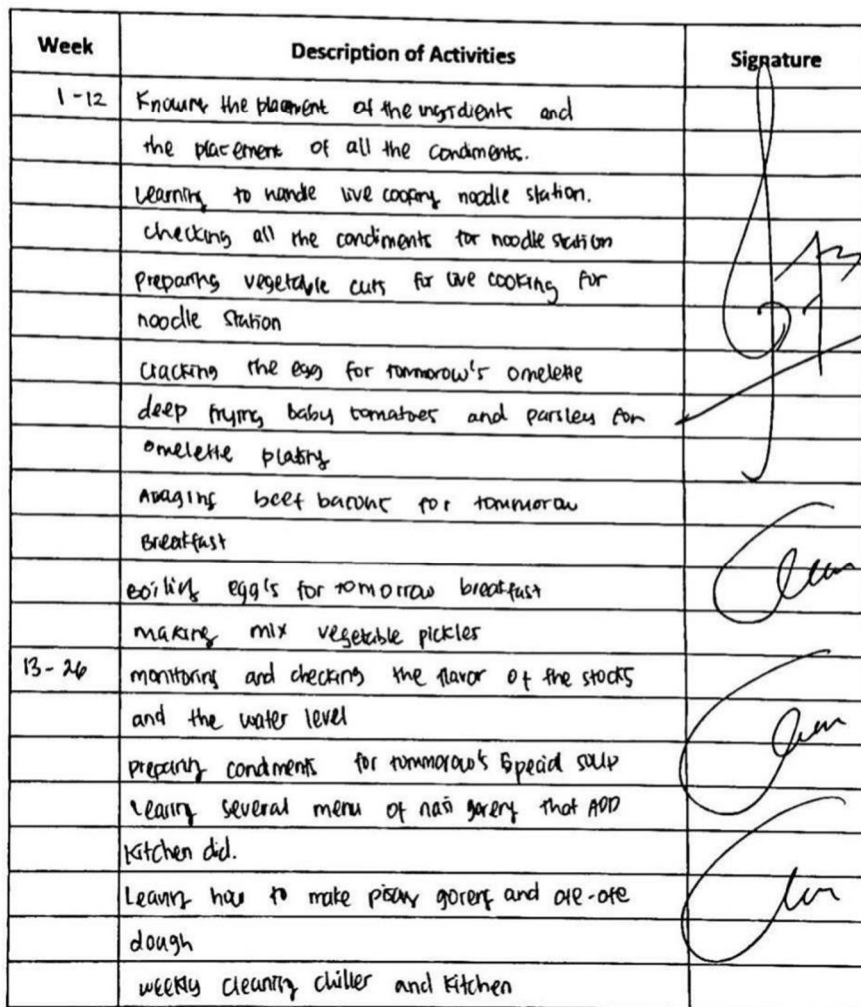 Week Description of Activities Signature
1-12 Knowing the placement of the ingredients and
the placement of all the condiments.
Learning to handle live cooking noodle station.
checking all the condiments for noodle station
preparing vegetable cuts for live cooking for
noodle station
cracking the egg for tommorow's omelette
deep frying baby tomatoes and parsley for
omelette plating
beef bacons for tommorow
Breakfast
Boiling egg's for tomorrow breakfast
making mix vegetable pickles
13-26 monitoring and checking the flavor of the stocks
and the water level
preparing condments for tommorow's special soup
Learing several menu of nasi goreng that ADD
Kitchen did.
Learing how to make pisang goreng and ote-ote
dough
weekly cleaning chiller and kitchen